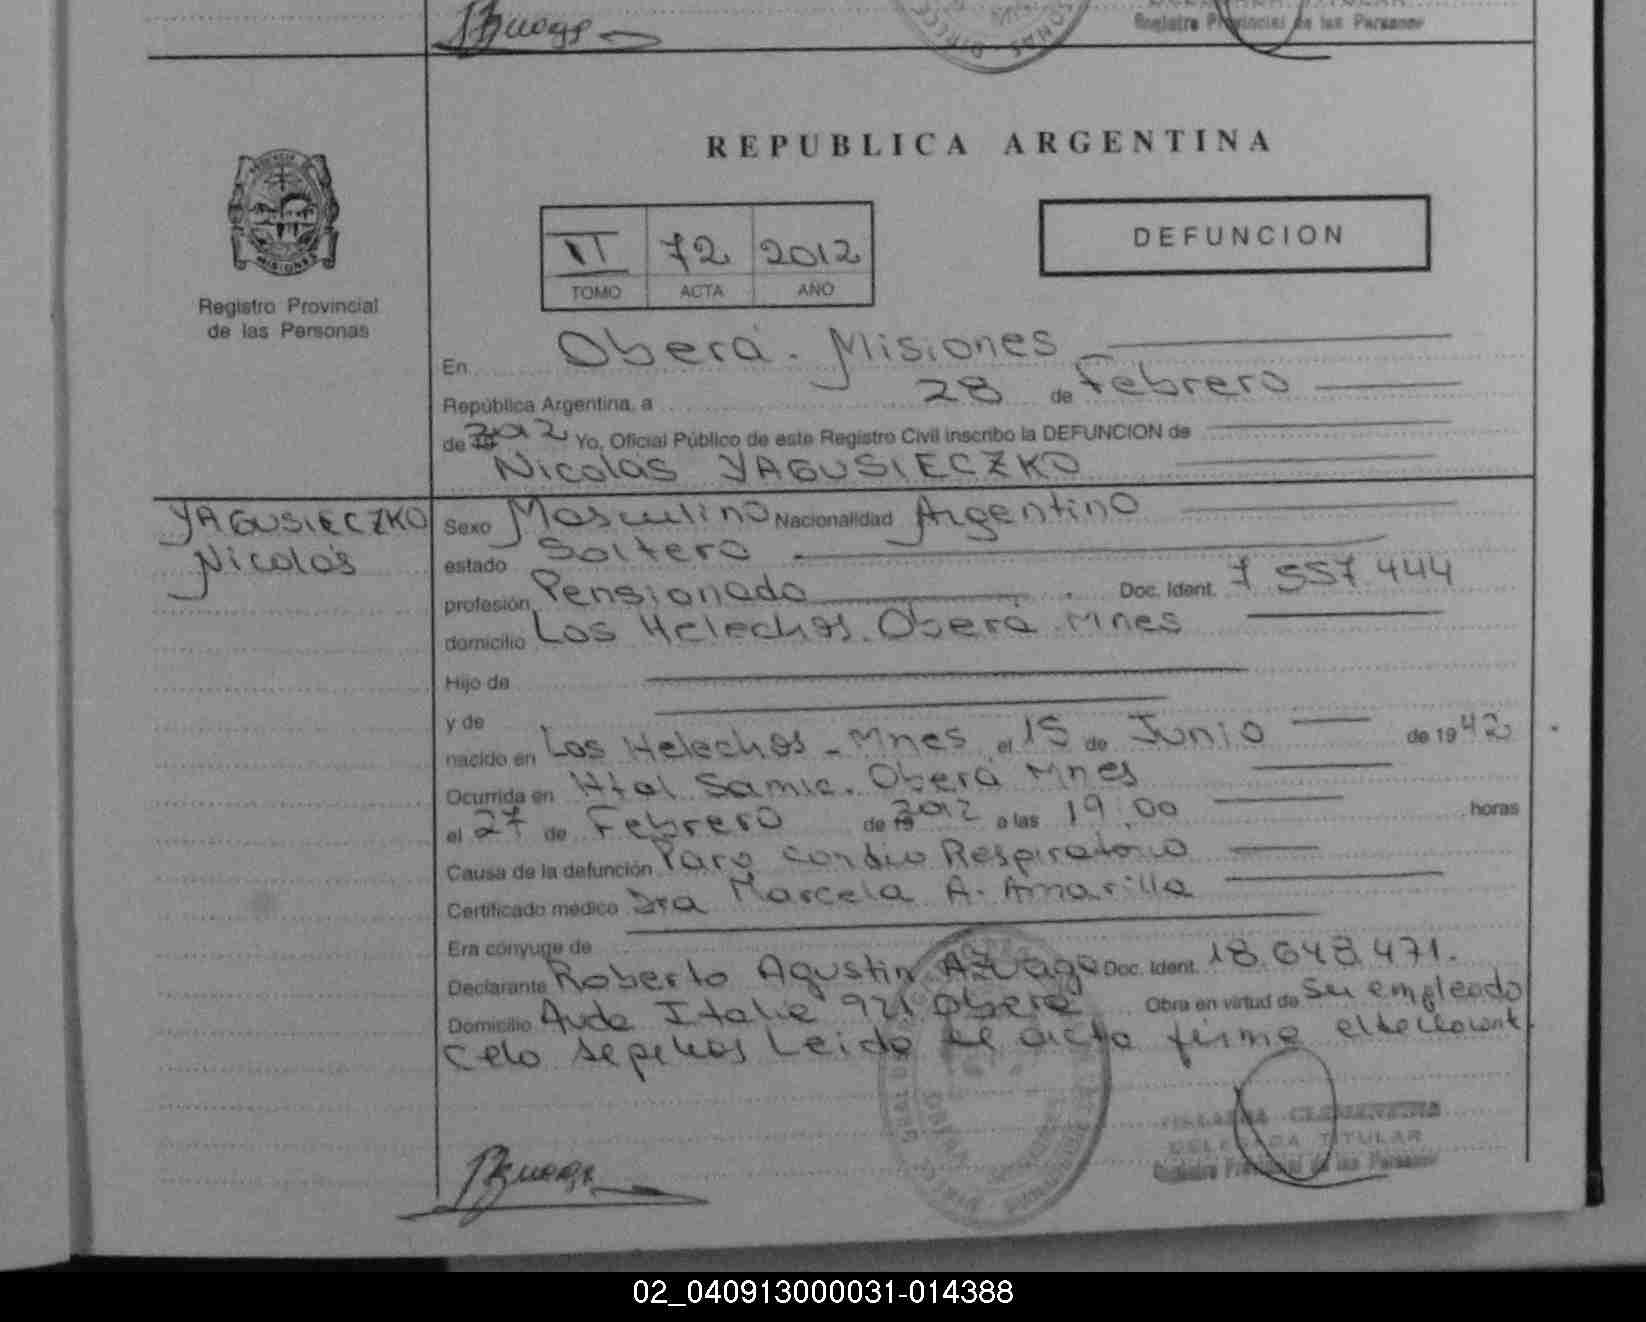 Registro Provincial de las Personas
REPUBLICA ARGENTINA
MISIONES
Registro Provincial
de las Personas
VI 72 2012
TOMO ACTA AÑO
DEFUNCION
En Oberá. Misiones
República Argentina, a 28 de Febrero
de 19 2012 Yo, Oficial Público de este Registro Civil inscribo la DEFUNCION de
Nicolás YAGUSIECZKO
YAGUSIECZKO
Nicolás
Sexo Masculino Nacionalidad Argentino
estado Soltero
profesión Pensionado Doc. Ident. 7 557 444
domicilio Los Helechos. Oberá Mnes
Hijo de
y de
nacido en Los Helechos - Mnes el 15 de Junio de 1942
Ocurrida en Htal Samic. Oberá Mnes
el 27 de Febrero de 19 2012 a las 19:00 horas
Causa de la defunción Paro cardio Respiratorio
Certificado médico Dra Marcela A. Amarilla
Era cónyuge de
Declarante Roberto Agustin Doc. Ident. 18.648.471.
Domicilio Avda Italia 921 Oberá Obra en virtud de Ser empleado
Leida el acta firma
DELEGADA TITULAR
Registro Provincial de las Personas
02_040913000031-014388